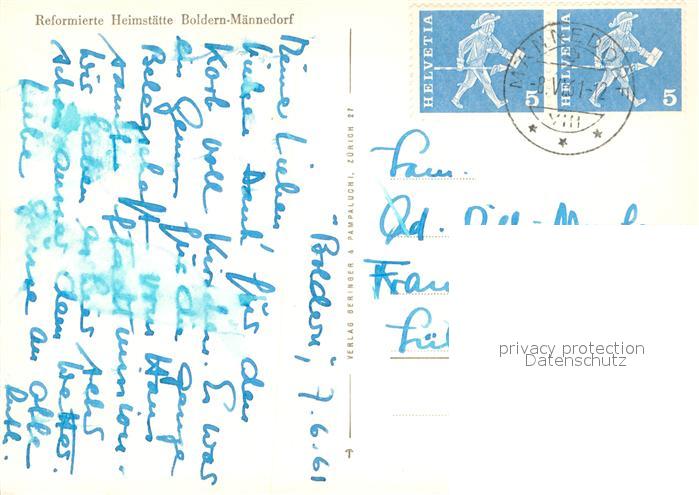 Reformierte Heimstätte Boldern-Männedorf
"Boldern", 7.6.61
Meine Lieben!
Vielen Dank für den
Korb voll Kirschen. Es war
ein Genuss für die ganze
Belegschaft vom Haus
samt
Wir haben es hier sehr
schön ausser dem Wetter.
Liebe Grüsse an alle
Ruth.
VERLAG BERINGER & PAMPALUCHI, ZÜRICH 27
HELVETIA 5
HELVETIA 5
MÄNNEDORF
VIII
Fam.
Frau
privacy protection
Datenschutz